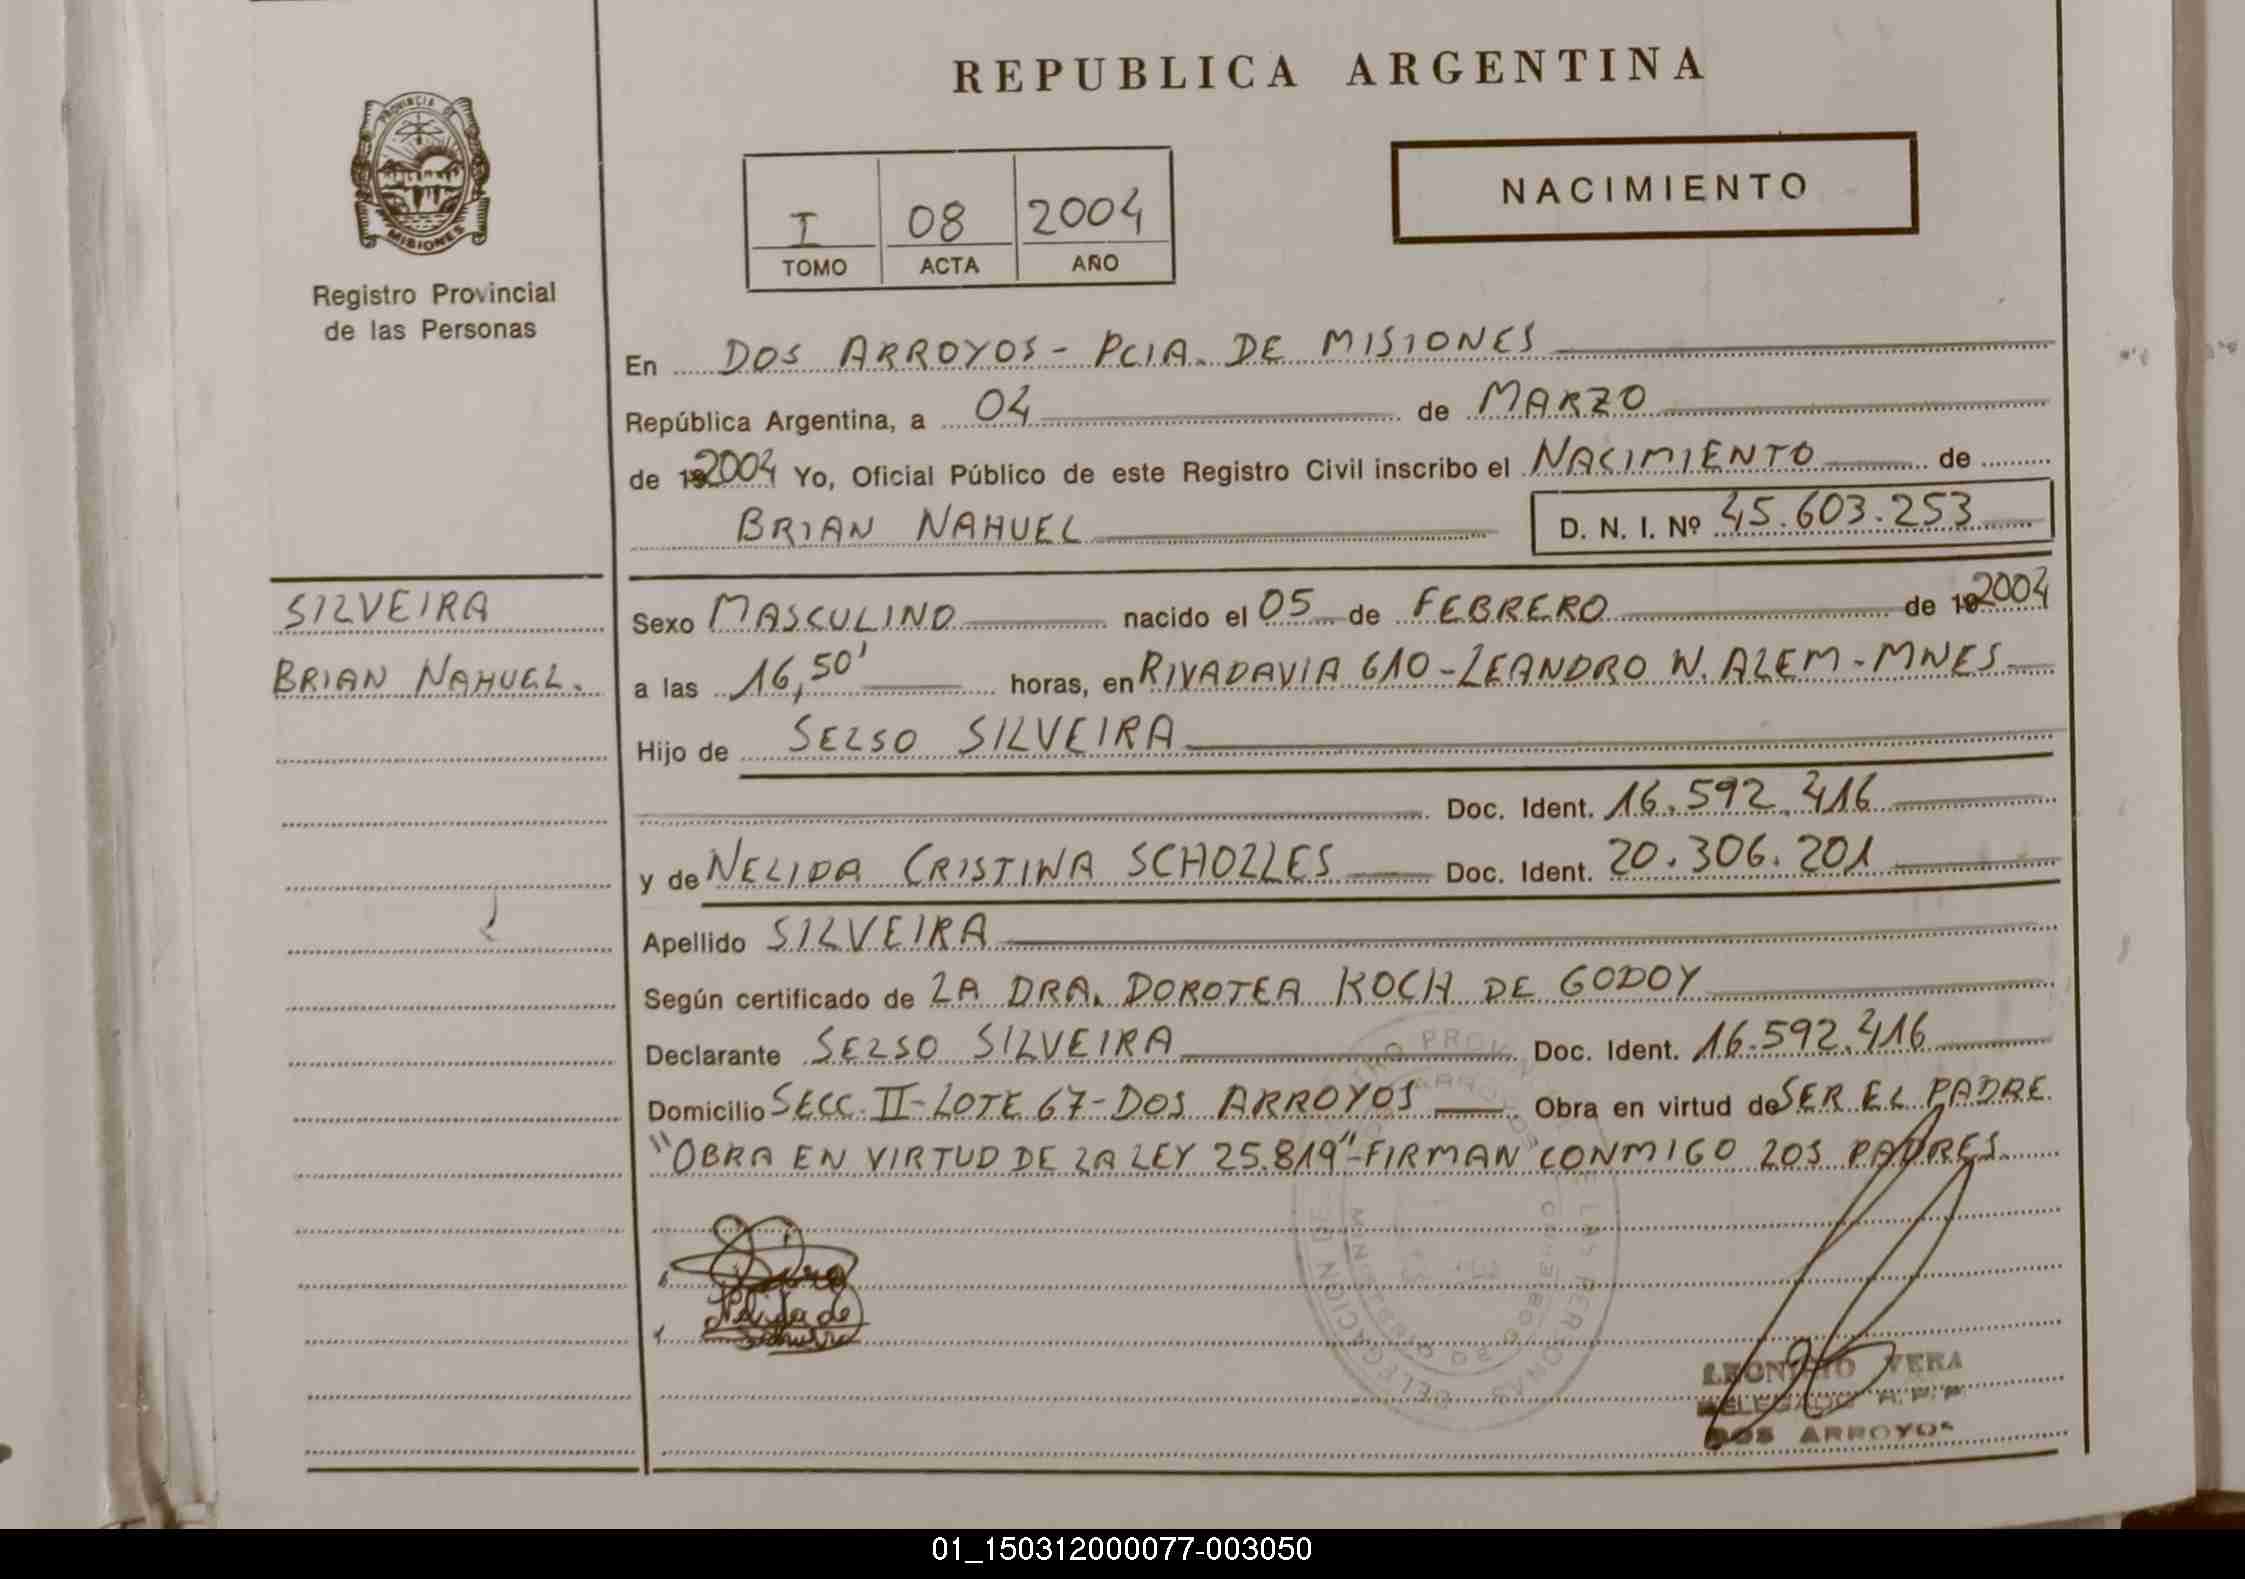 REPUBLICA ARGENTINA
PROVINCIA DE
MISIONES
Registro Provincial
de las Personas
I 08 2004
TOMO ACTA AÑO
NACIMIENTO
En DOS ARROYOS - PCIA. DE MISIONES
República Argentina, a 04 de MARZO
de 192004 Yo, Oficial Público de este Registro Civil inscribo el NACIMIENTO de
BRIAN NAHUEL D. N. I. Nº 45.603.253
SILVEIRA
BRIAN NAHUEL.
Sexo MASCULINO nacido el 05 de FEBRERO de 192004
a las 16,50' horas, en RIVADAVIA 610 - LEANDRO N. ALEM - MNES
Hijo de SELSO SILVEIRA
Doc. Ident. 16.592.416
y de NELIDA CRISTINA SCHOLLES Doc. Ident. 20.306.201
Apellido SILVEIRA
Según certificado de LA DRA. DOROTEA KOCH DE GODOY
Declarante SELSO SILVEIRA Doc. Ident. 16.592.416
Domicilio SECC. II - LOTE 67 - DOS ARROYOS Obra en virtud de SER EL PADRE
"OBRA EN VIRTUD DE LA LEY 25.819" - FIRMAN CONMIGO LOS PADRES
Nelida de
VERA
DELEGADO R.P.P.
DOS ARROYOS
01_150312000077-003050